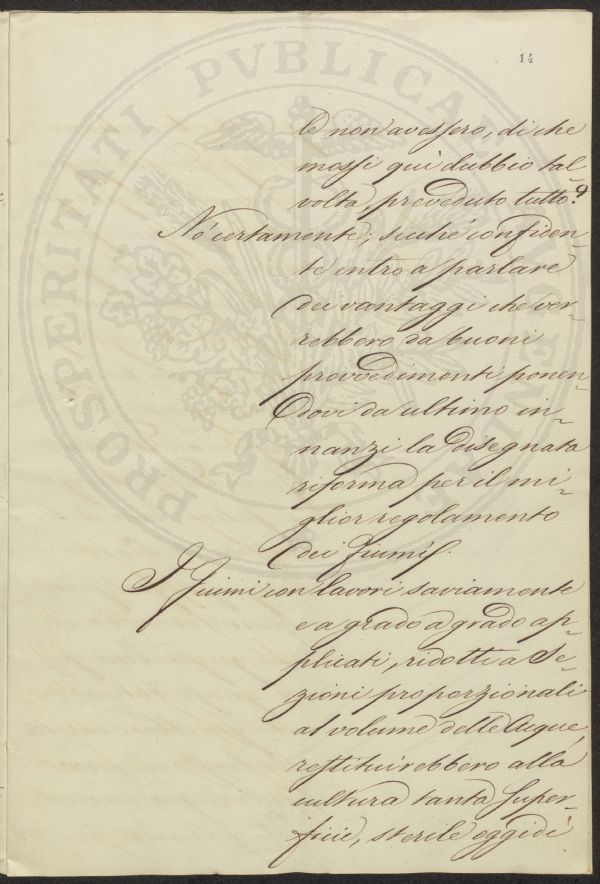 14
le non avessero, di che
mossi quì dubbio tal-
volta, preveduto tutto?
Nò certamente; sicchè confiden-
te entro a parlare
dei vantaggi che ver-
rebbero da buoni
provvedimenti ponen-
dovi da ultimo in-
nanzi la disegnata
riforma per il mi-
glior regolamento
dei fiumi.
I fiumi con lavori saviamente
e a grado a grado ap-
plicati, ridotti a Se-
zioni proporzionali
al volume delle Acque,
restituirebbero alla
cultura tanta super-
ficie, sterile oggidì
PROSPERITATI PVBLICAE